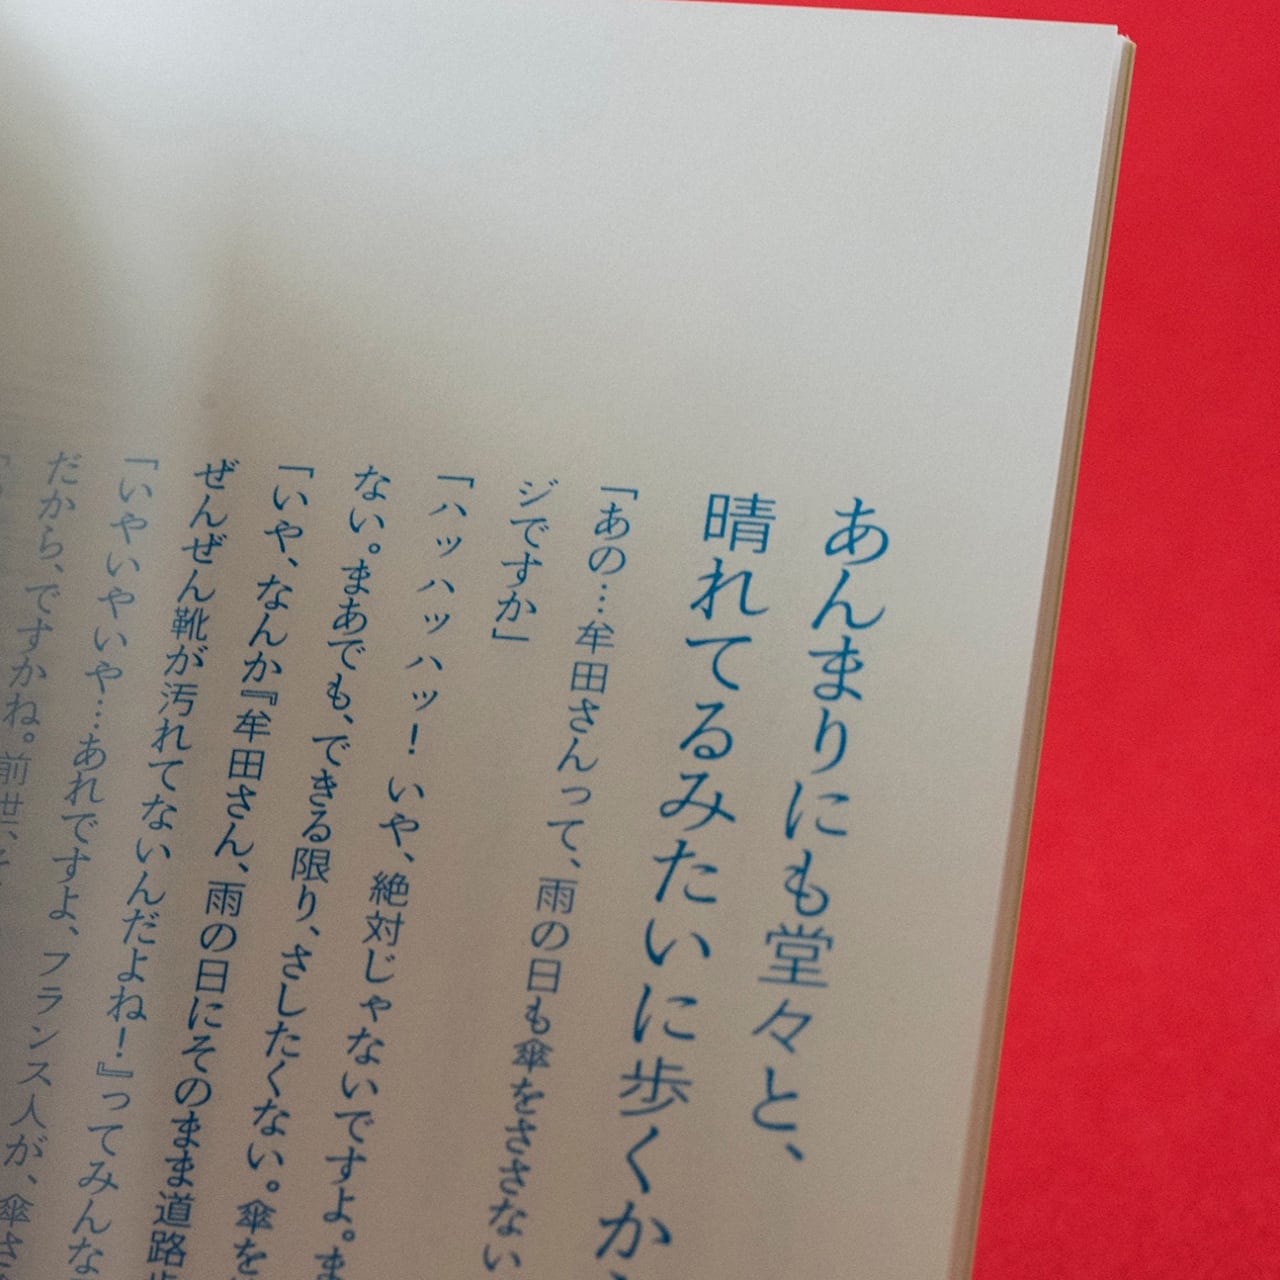 あんまりにも堂々と、
晴れてるみたいに歩くか
「あの…牟田さんって、雨の日も傘をささない
ジですか」
「ハッハッハッ！いや、絶対じゃないですよ。ま
ない。まあでも、できる限り、さしたくない。傘を
「いや、なんか『牟田さん、雨の日にそのまま道路
ぜんぜん靴が汚れてないんだよね！』ってみんな
「いやいやいや…あれですよ、フランス人が、傘さ
だから、ですかね。前世、